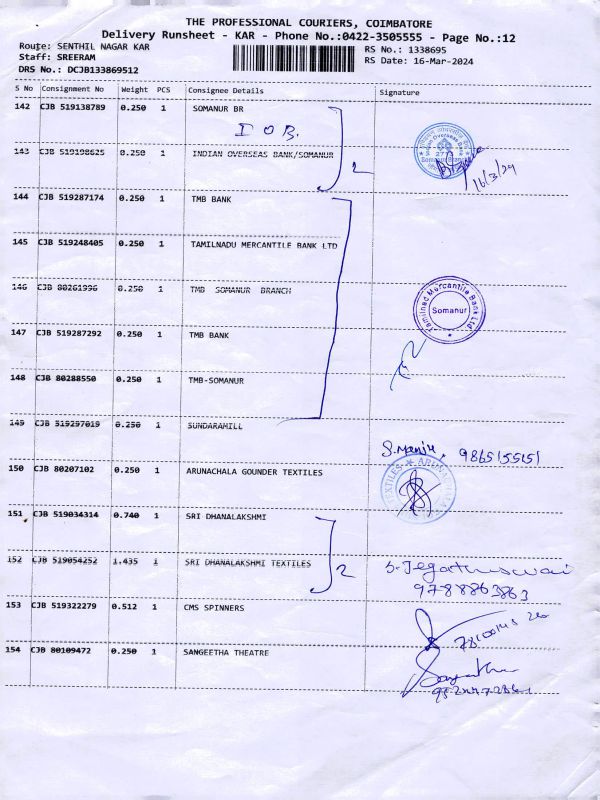 THE PROFESSIONAL COURIERS, COIMBATORE
Delivery Runsheet - KAR - Phone No.:0422-3505555 - Page No.:12
Route: SENTHIL NAGAR KAR
RS No.: 1338695
Staff: SREERAM
RS Date: 16-Mar-2024
DRS No.: DCJB133869512
S No Consignment No Weight PCS Consignee Details Signature
142 CJB 519138789 0.250 1 SOMANUR BR
I O B.
143 CJB 519198625 0.250 1 INDIAN OVERSEAS BANK/SOMANUR
2
Somanur Branch
16/3/24
144 CJB 519287174 0.250 1 TMB BANK
145 CJB 519248405 0.250 1 TAMILNADU MERCANTILE BANK LTD
146 CJB 80261996 0.250 1 TMB SOMANUR BRANCH
Tamilnad Mercantile Bank Ltd
Somanur
147 CJB 519287292 0.250 1 TMB BANK
148 CJB 80288550 0.250 1 TMB-SOMANUR
149 CJB 519297019 0.250 1 SUNDARAMILL
S.Manju, 9865155151
150 CJB 80207102 0.250 1 ARUNACHALA GOUNDER TEXTILES
151 CJB 519034314 0.740 1 SRI DHANALAKSHMI
152 CJB 519054252 1.435 1 SRI DHANALAKSHMI TEXTILES
2
9788863863
153 CJB 519322279 0.512 1 CMS SPINNERS
154 CJB 80109472 0.250 1 SANGEETHA THEATRE